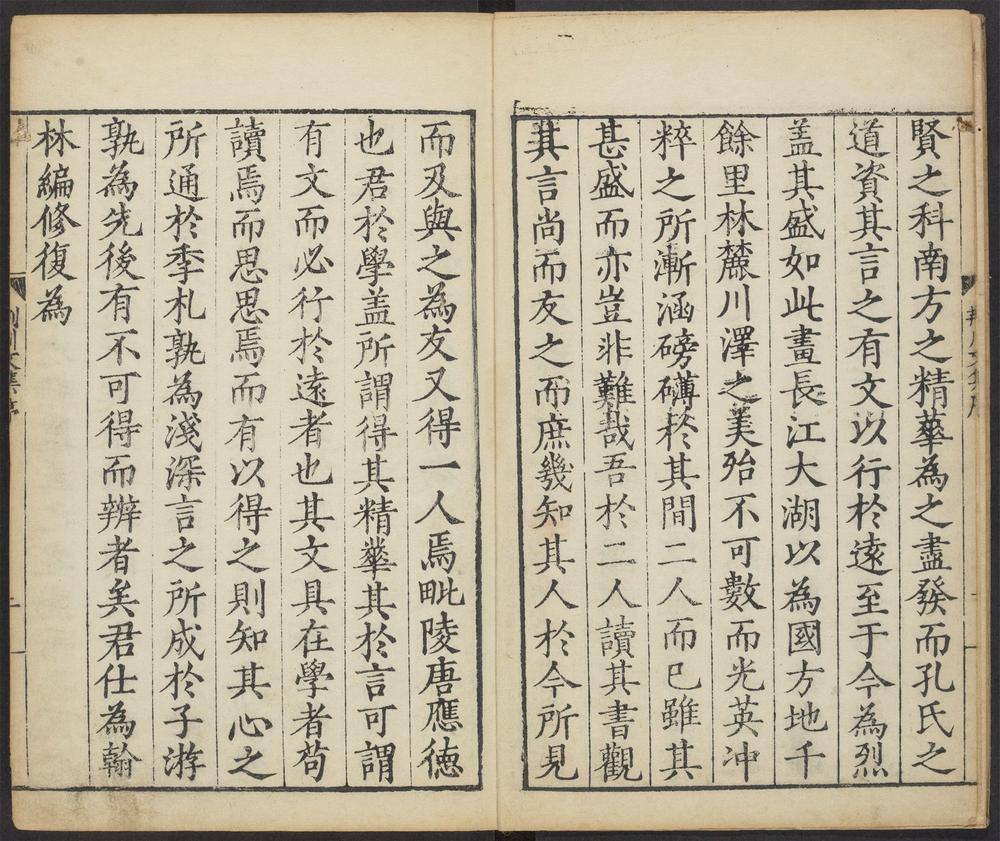 賢之科南方之精華為之盡發而孔氏之
道資其言之有文以行於遠至于今為烈
盖其盛如此畫長江大湖以為國方地千
餘里林麓川澤之美殆不可數而光英冲
粹之所漸涵磅礴於其間二人而已雖其
甚盛而亦豈非難哉吾於二人讀其書觀
其言尚而友之而庶幾知其人於今所見
而及與之為友又得一人焉毗陵唐應德
也君於學盖所謂得其精華其於言可謂
有文而必行於遠者也其文具在學者苟
讀焉而思思焉而有以得之則知其心之
所通於季札孰為淺深言之所成於子游
孰為先後有不可得而辯者矣君仕為翰
林編修復為